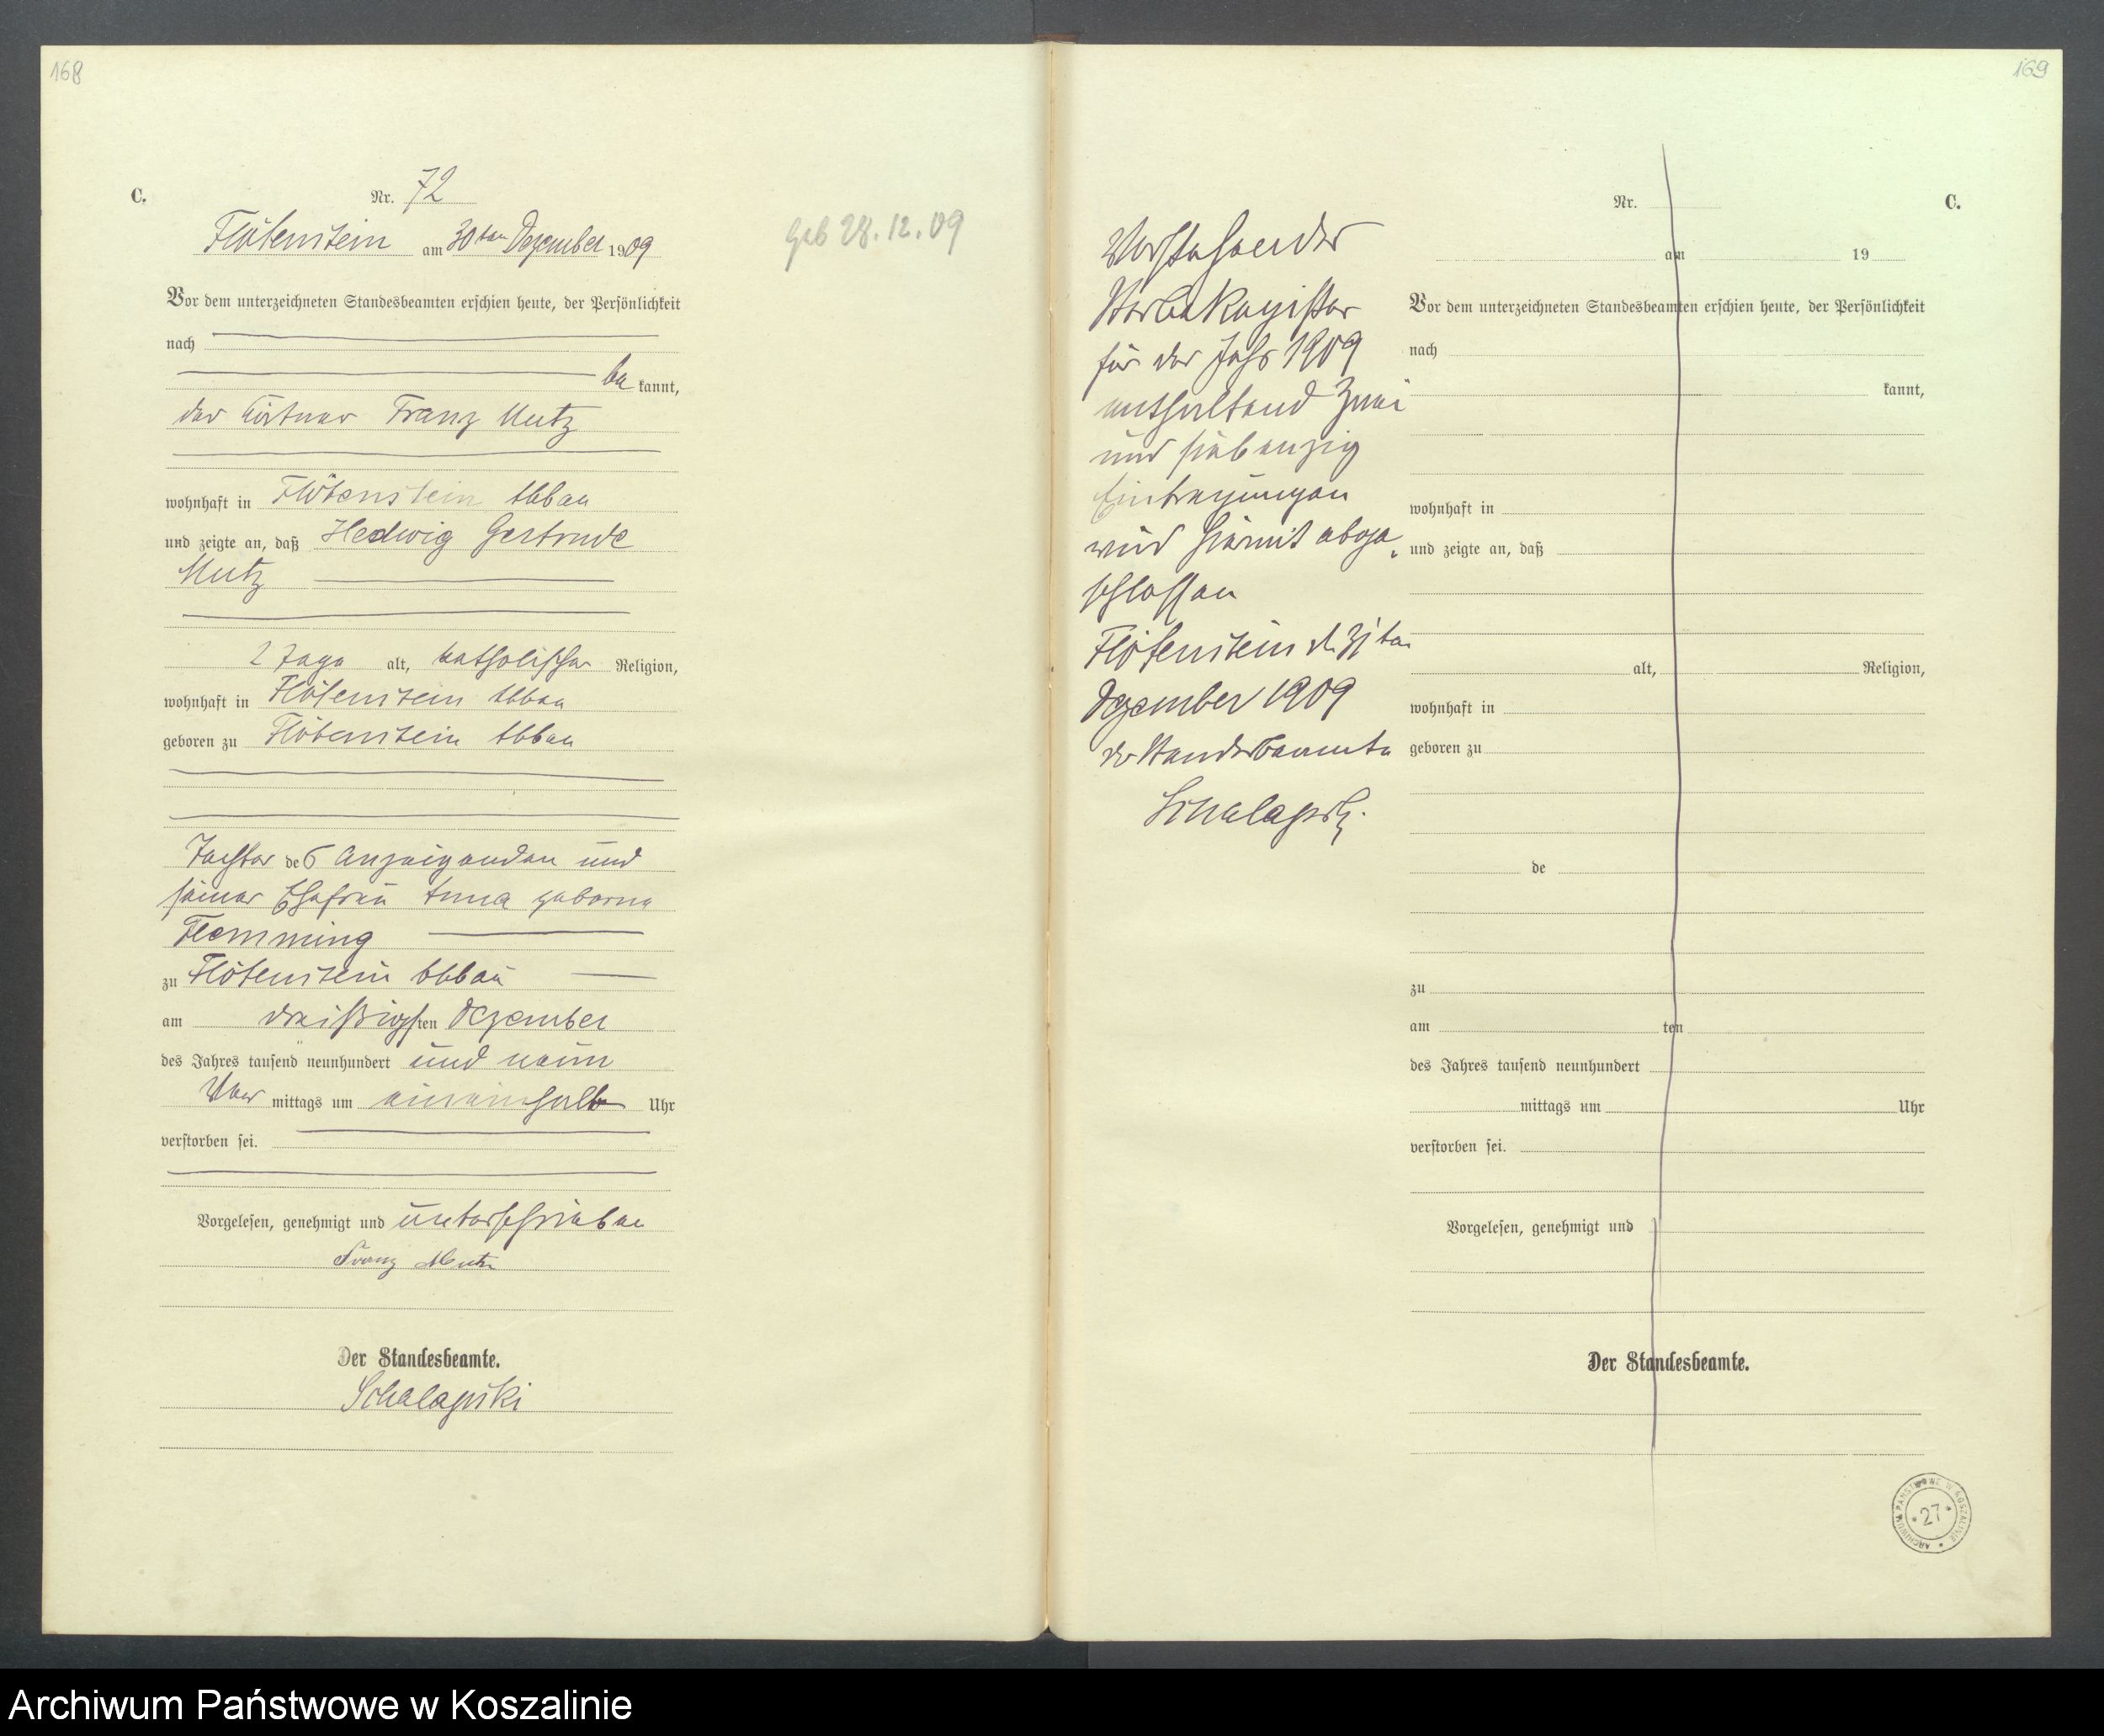 168
C.
Nr. 72
Flötenstein am 30ten Dezember 1909
geb 28.12.09
Vor dem unterzeichneten Standesbeamten erschien heute, der Persönlichkeit
nach
be kannt,
der Franz Mutz
wohnhaft in Flötenstein Abbau
und zeigte an, daß Hedwig Gertrude
Mutz
2 Tage alt, katholischer Religion,
wohnhaft in Flötenstein Abbau
geboren zu Flötenstein Abbau
Tochter des Anzeigenden und
seiner Ehefrau Anna geborne
Flemming
zu Flötenstein Abbau
am dreißigsten Dezember
des Jahres tausend neunhundert und neun
Vor mittags um Uhr
verstorben sei.
Vorgelesen, genehmigt und unterschrieben
Franz Mutz
Der Standesbeamte.
Schalapski
169
Nr. C.
Vorstehender
Sterbe Register
für das Jahr 1909
enthaltend zwei
und siebenzig
Eintragungen
wird hiermit abge
schlossen
Flötenstein d. 31ten
Dezember 1909
der Standesbeamte
Schalapski.
am 19
Vor dem unterzeichneten Standesbeamten erschien heute, der Persönlichkeit
nach
kannt,
wohnhaft in
und zeigte an, daß
alt, Religion,
wohnhaft in
geboren zu
de
zu
am ten
des Jahres tausend neunhundert
mittags um Uhr
verstorben sei.
Vorgelesen, genehmigt und
Der Standesbeamte.
ARCHIWUM PAŃSTWOWE W KOSZALINIE
* 27 *
Archiwum Państwowe w Koszalinie